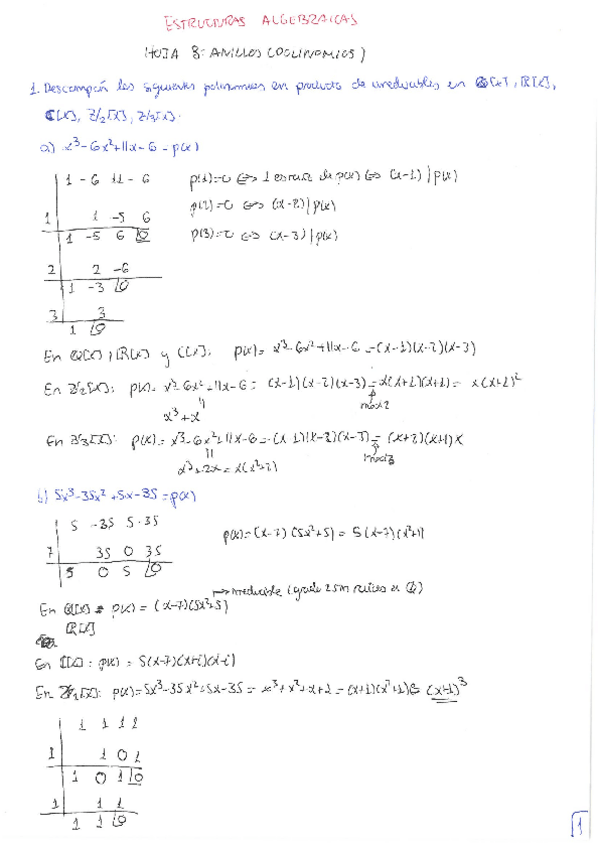 ESTRUCTURAS ALGEBRAICAS
HOJA 8: ANILLOS (POLINOMIOS)
1. Descompón los siguientes polinomios en producto de irreducibles en Q[x], R[x],
C[x], Z/2[x], Z/3[x].
a) x³-6x²+11x-6 = p(x)
1 -6 11 -6
1 1 -5 6
1 -5 6 0
2 2 -6
1 -3 0
3 3
1 0
p(1)=0 ⇔ 1 es raíz de p(x) ⇔ (x-1) | p(x)
p(2)=0 ⇔ (x-2) | p(x)
p(3)=0 ⇔ (x-3) | p(x)
En Q[x], R[x] y C[x]: p(x) = x³-6x²+11x-6 = (x-1)(x-2)(x-3)
En Z/2[x]: p(x) = x³-6x²+11x-6 = (x-1)(x-2)(x-3) = x(x+1)(x+1) = x(x+1)²
mod 2
x³+x
En Z/3[x]: p(x) = x³-6x²+11x-6 = (x-1)(x-2)(x-3) = (x+2)(x+1)x
mod 3
x³+2x = x(x²+2)
b) 5x³-35x²+5x-35 = p(x)
5 -35 5 -35
7 35 0 35
5 0 5 0
p(x) = (x-7)(5x²+5) = 5(x-7)(x²+1)
irreducible (grado 2 sin raíces en Q)
En Q[x] p(x) = (x-7)(5x²+5)
R[x]
En C[x]: p(x) = 5(x-7)(x+i)(x-i)
En Z/2[x]: p(x) = 5x³-35x²+5x-35 = x³+x²+x+1 = (x+1)(x²+1) = (x+1)³
1 1 1 1
1 1 0 1
1 0 1 0
1 1 1
1 1 0
1